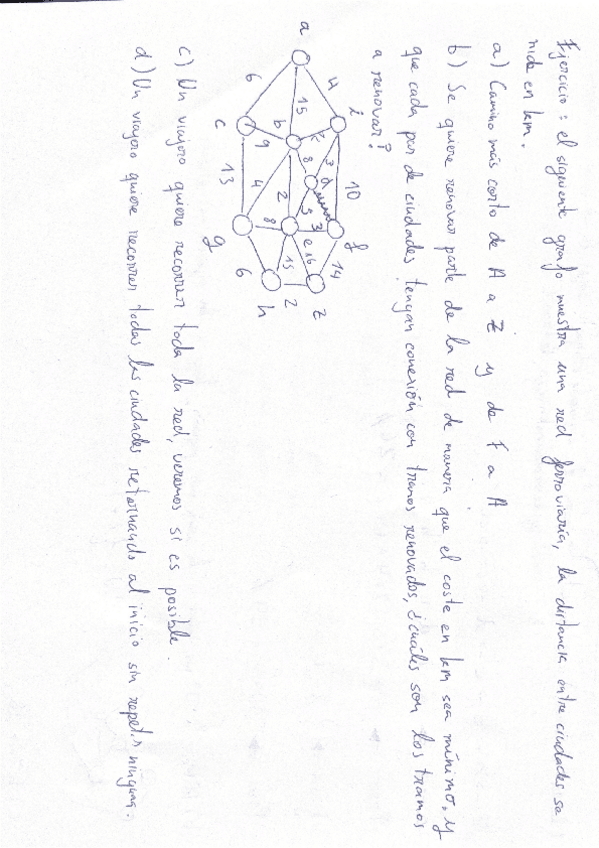 Ejercicio: el siguiente grafo muestra una red ferroviaria, la distancia entre ciudades se
mide en km.
a) Camino más corto de A a Z y de F a A
b) Se quiere renovar parte de la red de manera que el coste en km sea mínimo, y
que cada par de ciudades tengan conexión con tramos renovados, ¿cuáles son los tramos
a renovar?
a 4 i 10 f 14 z
15 b 2 3 d 3
6 9 8 5 e 16
c 4 2 8 15 2
13 g 6 h
c) Un viajero quiere recorrer toda la red, veremos si es posible.
d) Un viajero quiere recorrer todas las ciudades retornando al inicio sin repetir ninguna.